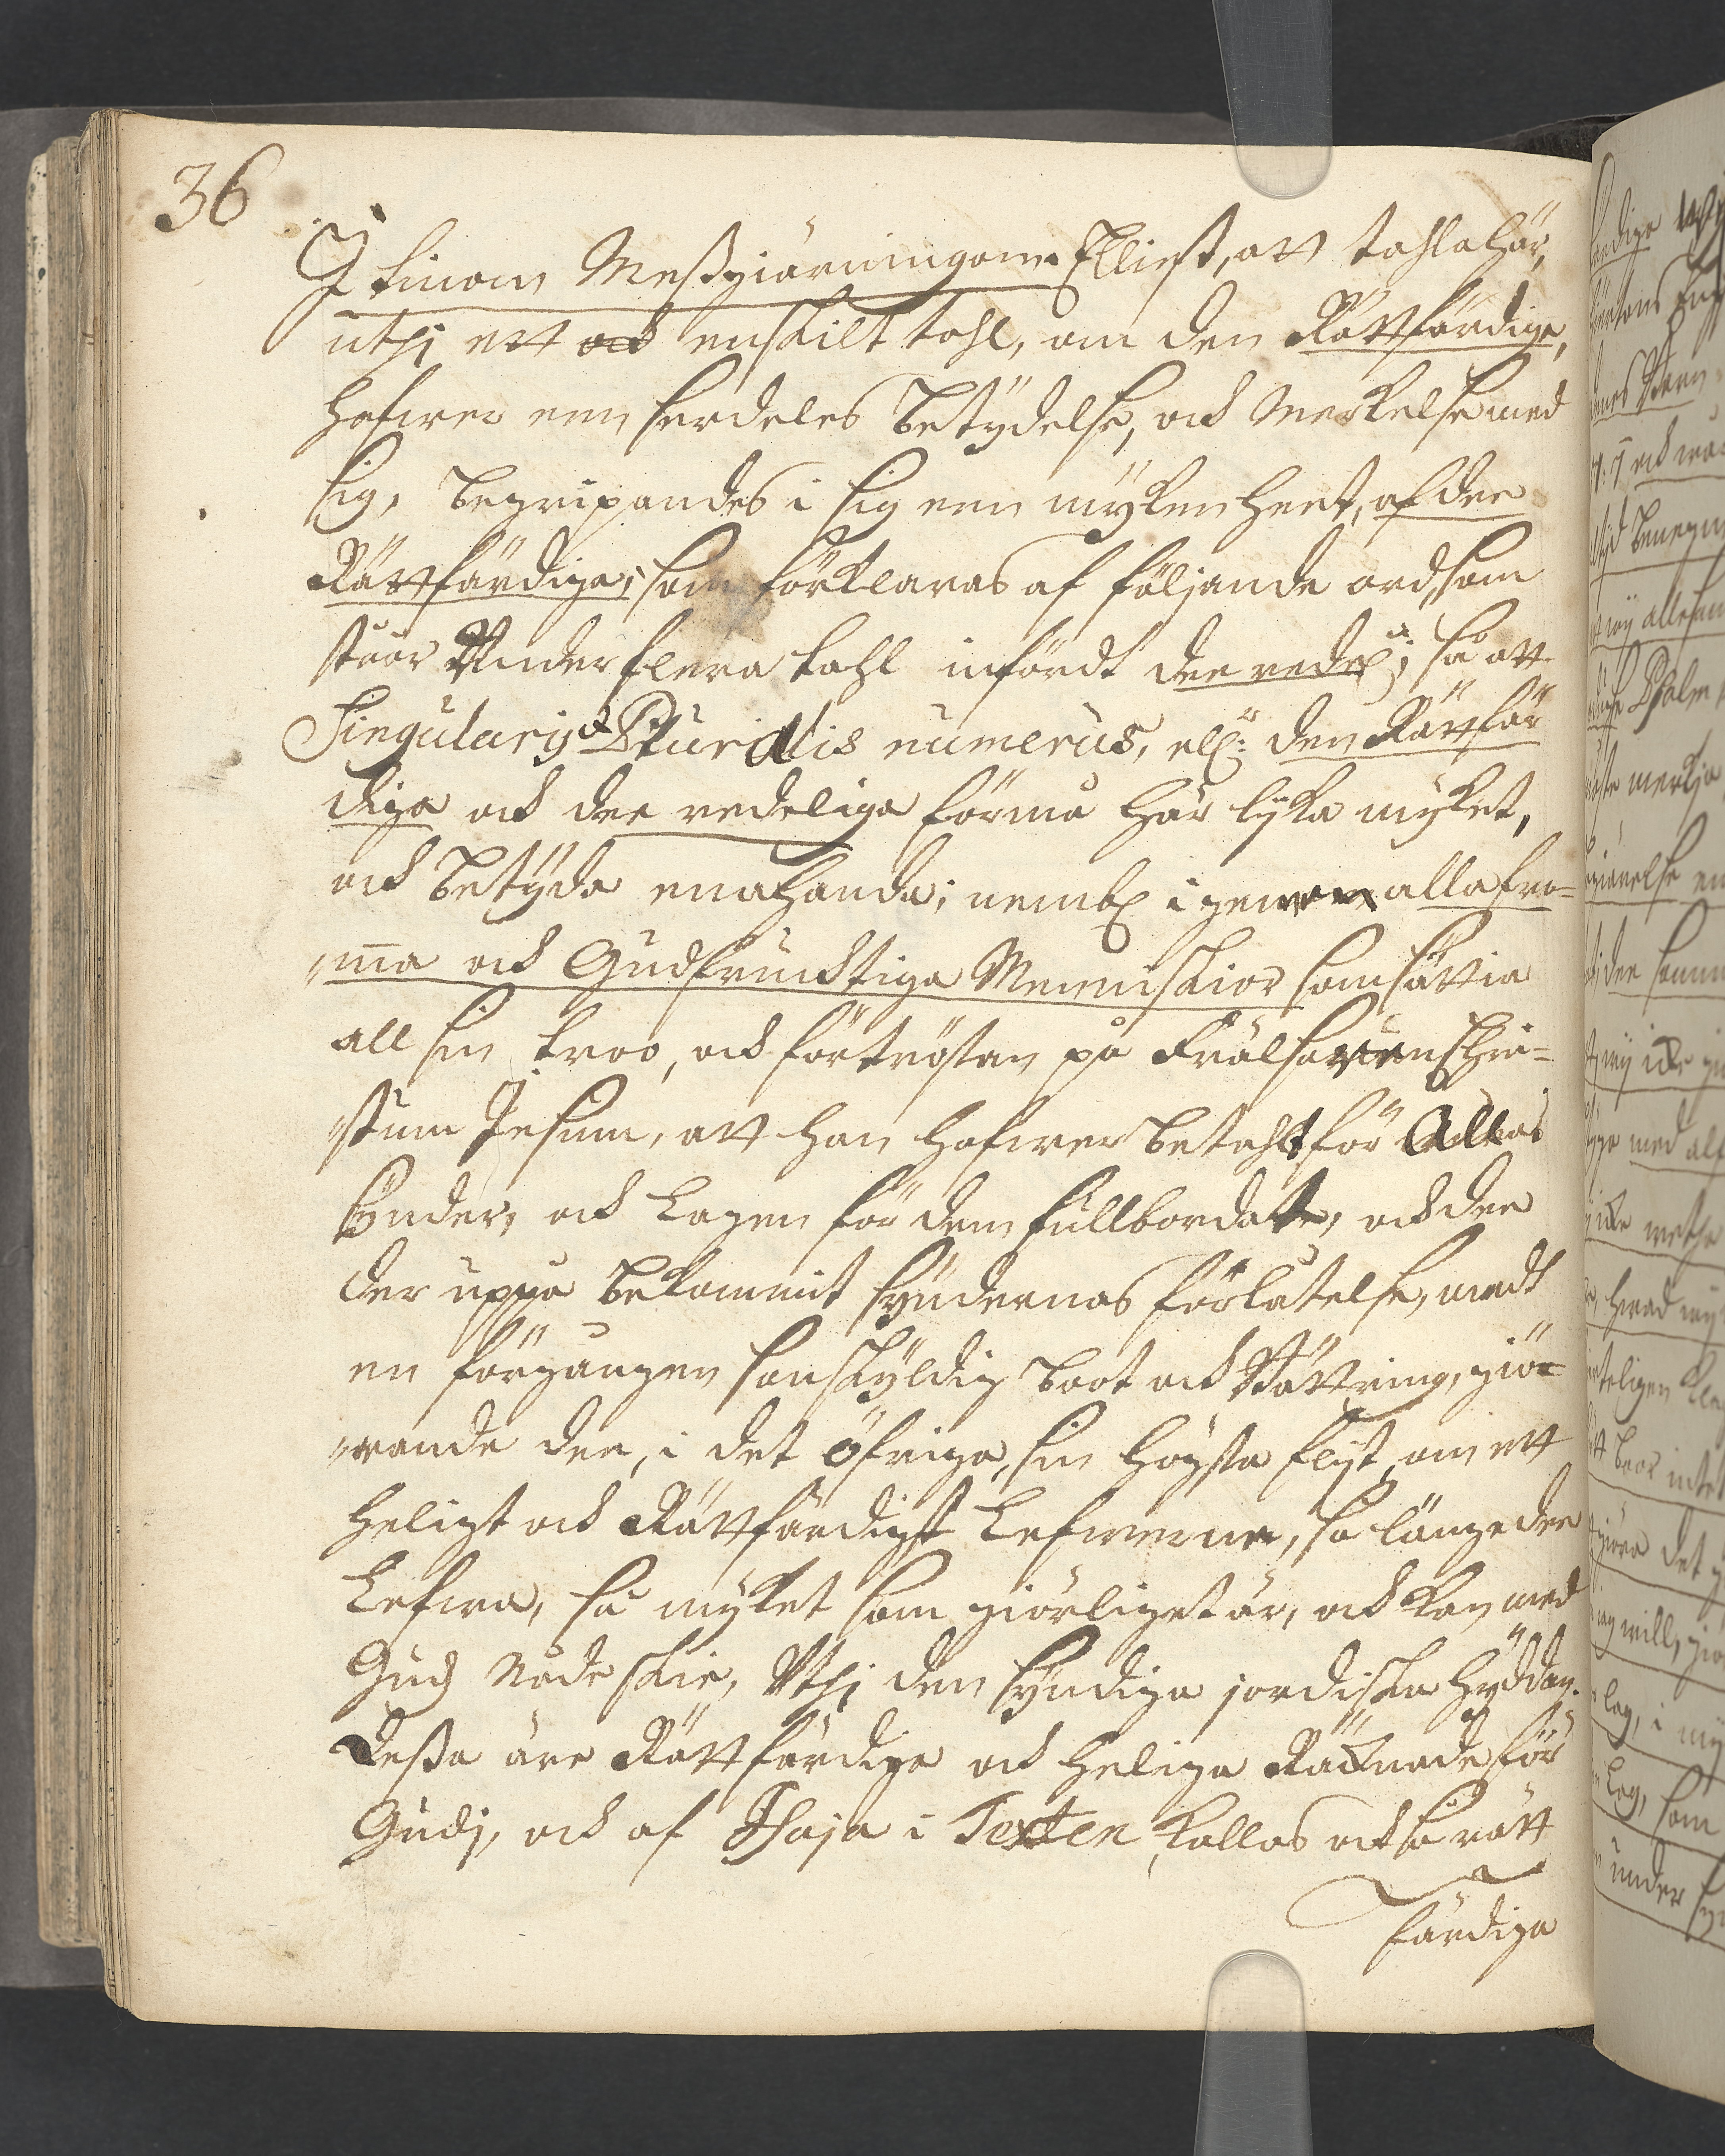 36
I tinom Missgiärningom. Elliest, att tahla här,
uthj ett ord enskilt tahl, om den Rättfärdige,
hafwer een serdeles betydelse, och Merkelse med
sig, begripandes i sig een mykenheet, af dee
Rättfärdiga; som förklaras af följande ord, som
står Under flera tahl infördt dee redel:a; så att
Singularis & Pluralis numerus, ell:r den Rättfär
diga och dee redeliga förmå här lyka myket,
och betyda enahanda; nembl igenom alla fro=
ma och Gudfrucktiga Menniskior som sättia
all sin troo, och förtröstan på Frälsaren Chri=
stum Jesum, att han hafwer betahlt för Allas
Synder, och Lagen för dem fullbordat, och dee
der uppå bekommit syndernas förlåtelse, medt
en förgången sanskyldig boot och Bättring, giö=
rande dee, i det öfriga, sin högsta flyt, om ett
heligt och Rättfärdigt Lefwerne, så länge dee
Lefwa, så myket som giörligt är, och kan med
Gudz Nåde skie, Uthj den syndiga jordiska hyddan.
Dessa äre Rättfärdige och helige Räcknade för
Gudj, och af Esaja i Texten kallas och så rätt
färdiga